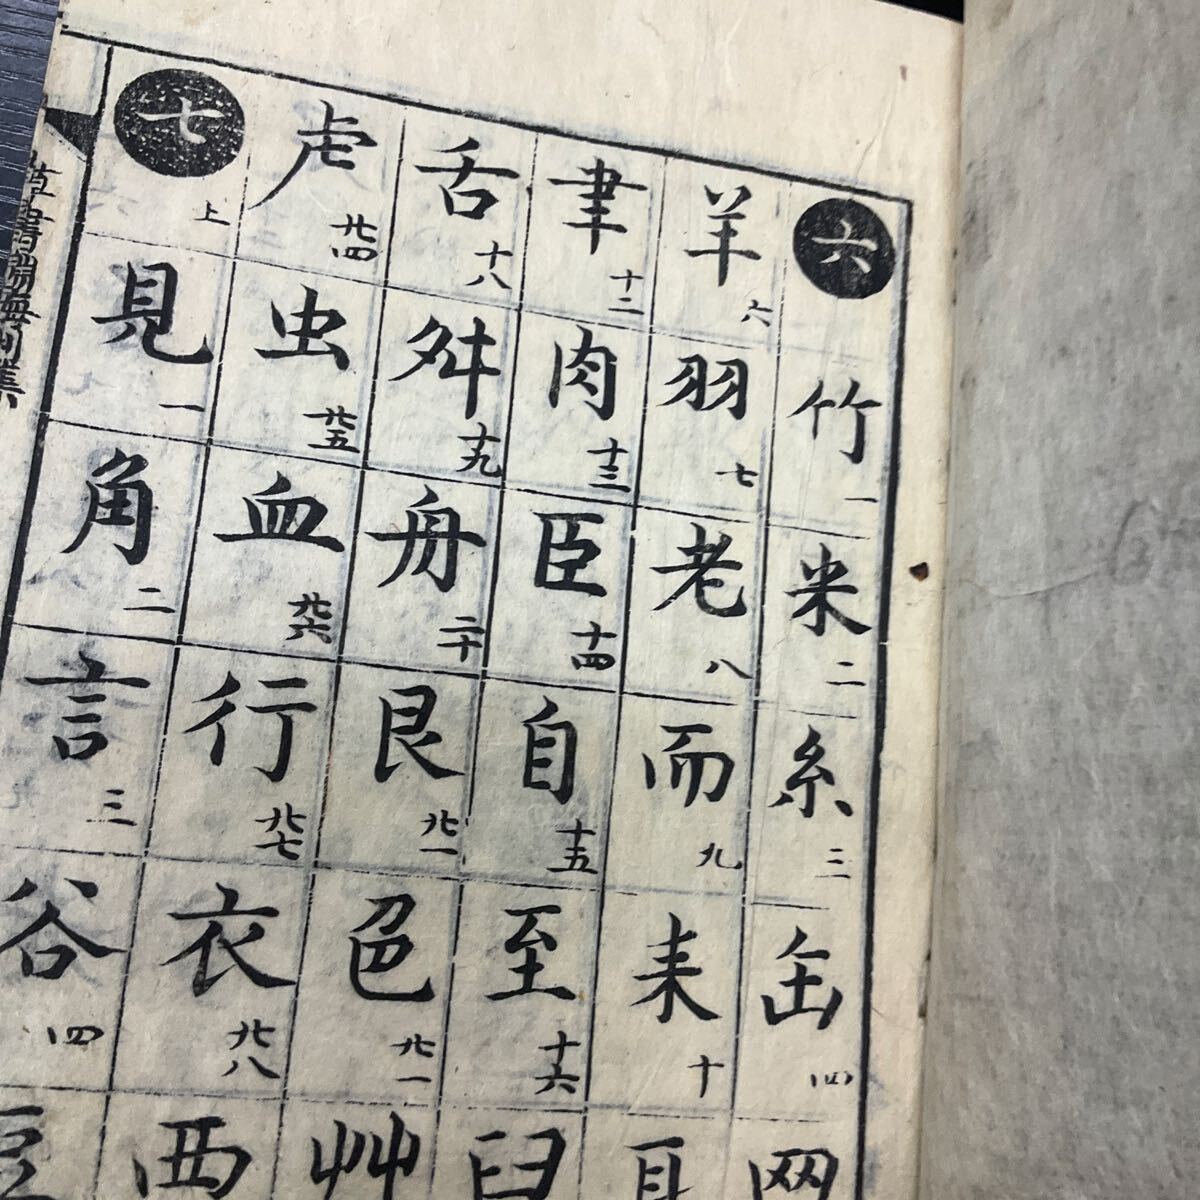 六
竹 一
米 二
糸 三
缶 四
网
羊 六
羽 七
老 八
而 九
耒 十
耳
聿 十二
肉 十三
臣 十四
自 十五
至 十六
臼
舌 十八
舛 十九
舟 二十
艮 廿一
色 廿一
艸
虍 廿四
虫 廿五
血 廿六
行 廿七
衣 廿八
西
七 上
見 一
角 二
言 三
谷 四
豆